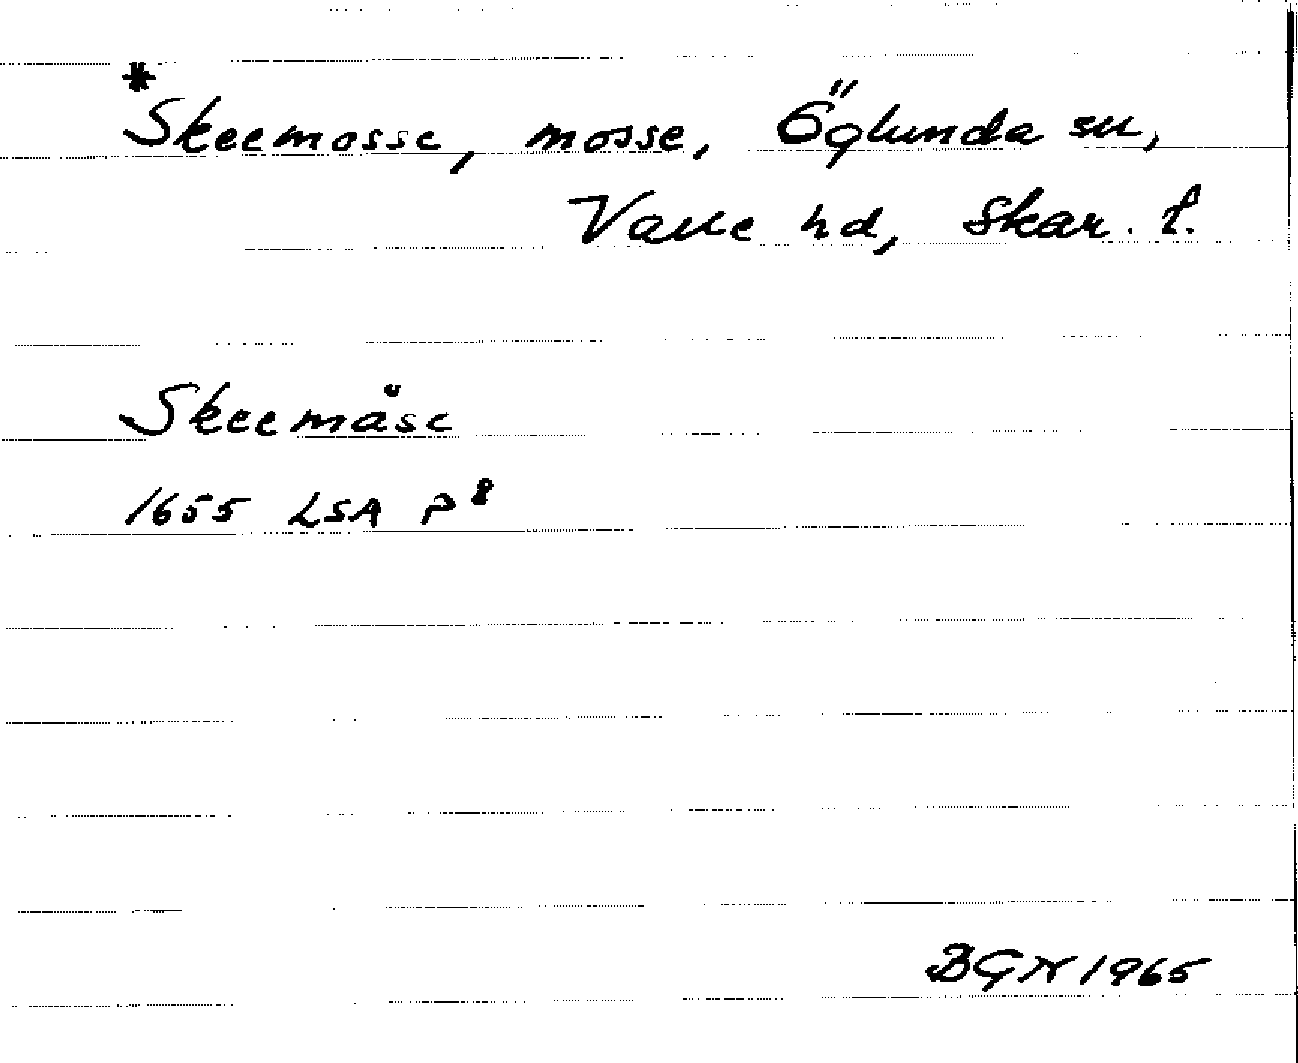 *Skeemosse, mosse, Öglunda sn,
Valle hd, Skar. l.
Skeemåse
1655 LSA P⁸
BGN 1965